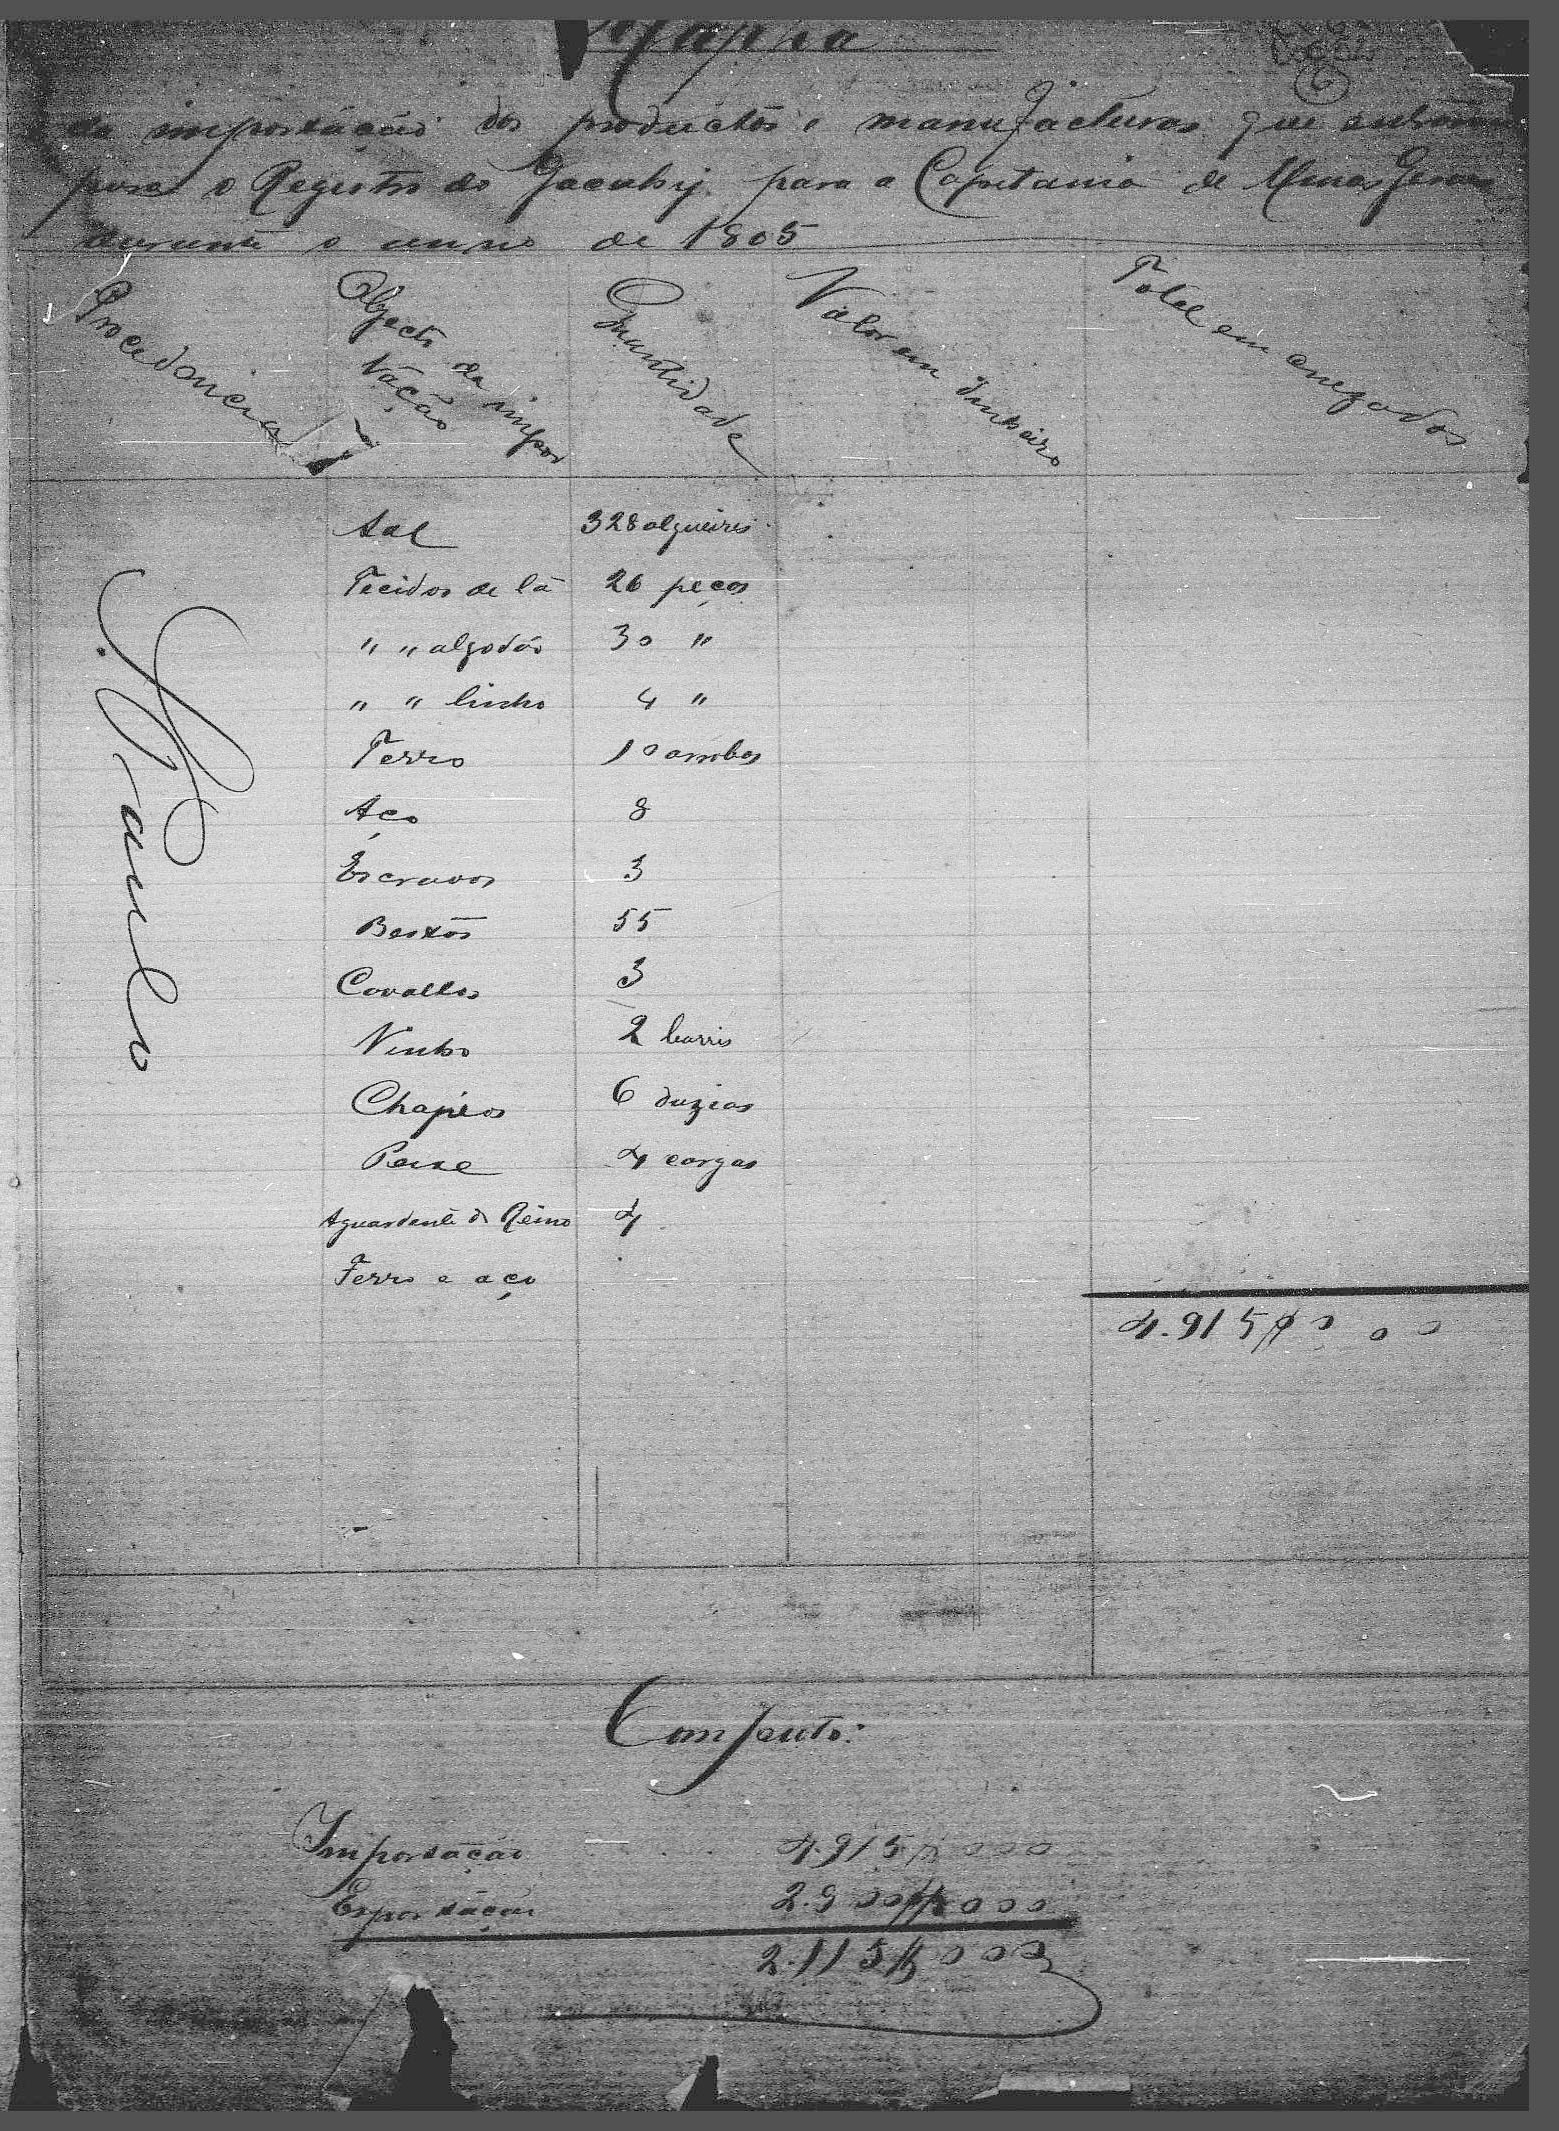 Mappa
da importação dos productos e manufacturas que entrárão
para o Registro do Jacuhy para a Capitania de Minas Geraes
durante o anno de 1805
Procedencia
Objecto da impor
tação
Quantidade
Valor em dinheiro
Total em cruzados
S. Paulo
Sal 328 alqueires
Tecidos de lã 26 peças
" " algodão 30 "
" " linho 4 "
Ferro 10 arrobas
Aço 8
Escravos 3
Bestas 55
Cavallos 3
Vinho 2 barris
Chapéos 6 duzias
Peixe 4 cargas
Aguardente do Reino 4
Ferro e aço
4.915$000
Importação 4.915$000
Exportação 2.900$000
2.115$000